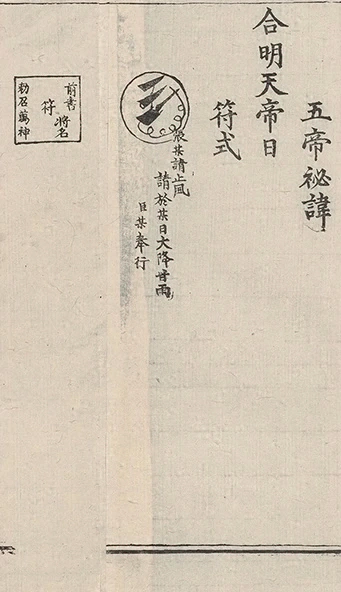 五帝祕諱
合明天帝日
符式
某請止風
請於某日大降甘雨
臣某奉行
前書將名
符
勅召萬神